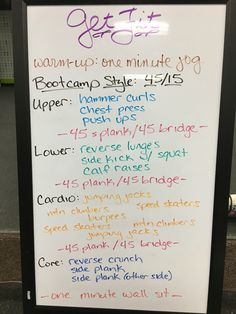 get fit
warm-up: one minute jog
Bootcamp Style: 45/15
Upper: hammer curls
chest press
push ups
-45 s plank/45 bridge-
Lower: reverse lunges
side kick w/ squat
calf raises
-45 plank/45 bridge-
Cardio: jumping jacks
mtn climbers speed skaters
burpees
speed skaters mtn climbers
jumping jacks
-45 plank/45 bridge-
Core: reverse crunch
side plank
side plank (other side)
-one minute wall sit-